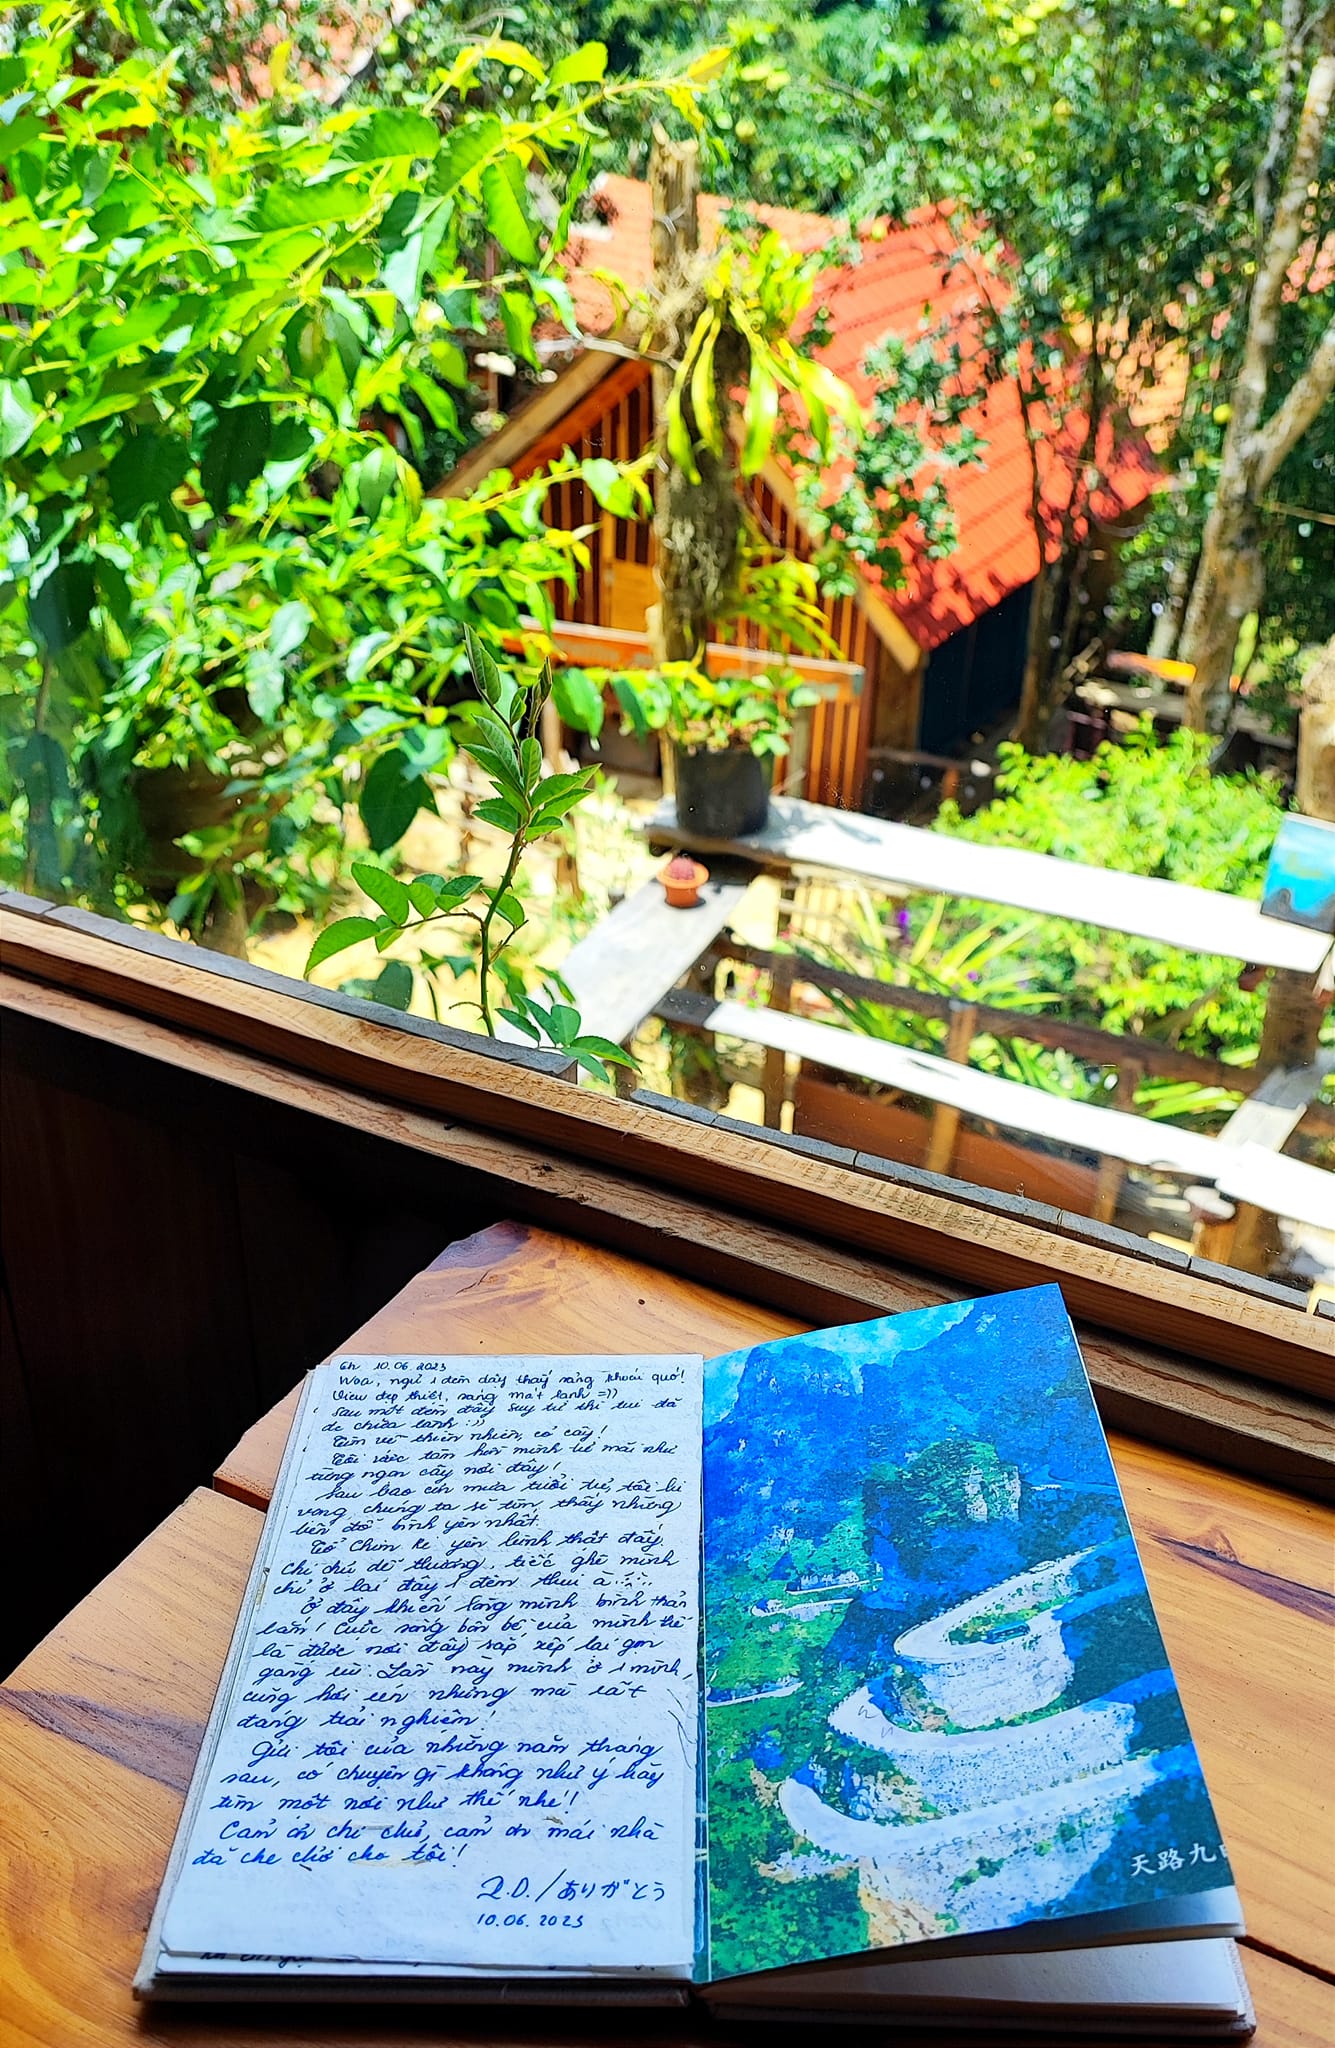 6h 10.06.2023
Woa, ngủ 1 đêm dậy thấy sảng khoái quá!
View đẹp thiệt, sáng mát lành =))
Sau một đêm đầy suy tư thì tui đã
đc chữa lành :))
Tìm về thiên nhiên, cỏ cây!
Tôi ước tâm hồn mình sẽ mãi như
từng ngọn cây nơi đây!
Sau bao cơn mưa tuổi trẻ, tôi hi
vọng chúng ta sẽ tìm thấy những
bến đỗ bình yên nhất.
Ở yên bình thật đấy.
Chị chủ dễ thương, tiếc ghê mình
chỉ ở lại đây 1 đêm thui à
Ở đây khiến lòng mình bình thản
lắm! Cuộc sống bộn bề của mình
là được nơi đây sắp xếp lại gọn
gàng Lần này mình ở 1 mình,
cũng hơi nhưng mà rất
đáng trải nghiệm!
Gửi tôi của những năm tháng
sau, có chuyện gì không như ý hãy
tìm một nơi như thế nhé!
Cảm ơn chị chủ, cảm ơn mái nhà
đã che chở cho tôi!
ありがとう
10.06.2023
天路九